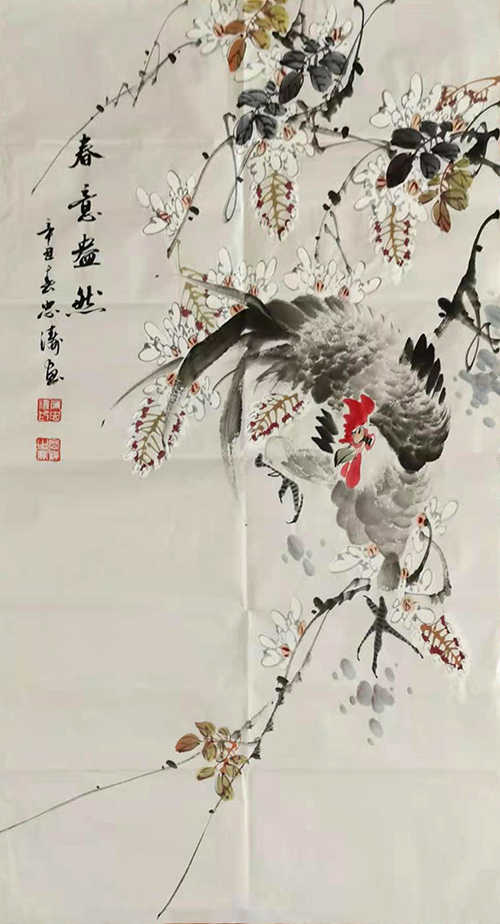 春意盎然
辛丑春忠涛画